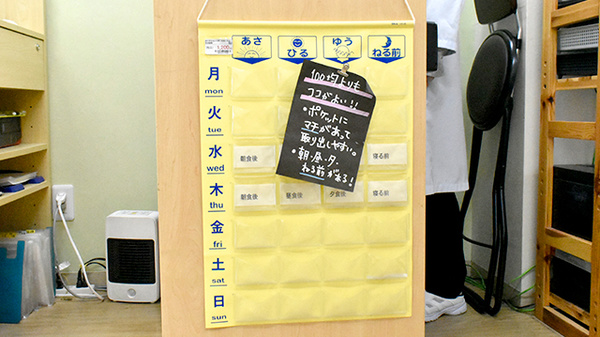 あさ ひる ゆう ねる前
100均よりも
ココがよい!!
・ポケットに
マチがあって
取り出しやすい。
・朝・昼・夕・
ねる前がある!
月
mon
火
tue
水
wed
朝食後 寝る前
木
thu
朝食後 昼食後 夕食後 寝る前
金
fri
土
sat
日
sun